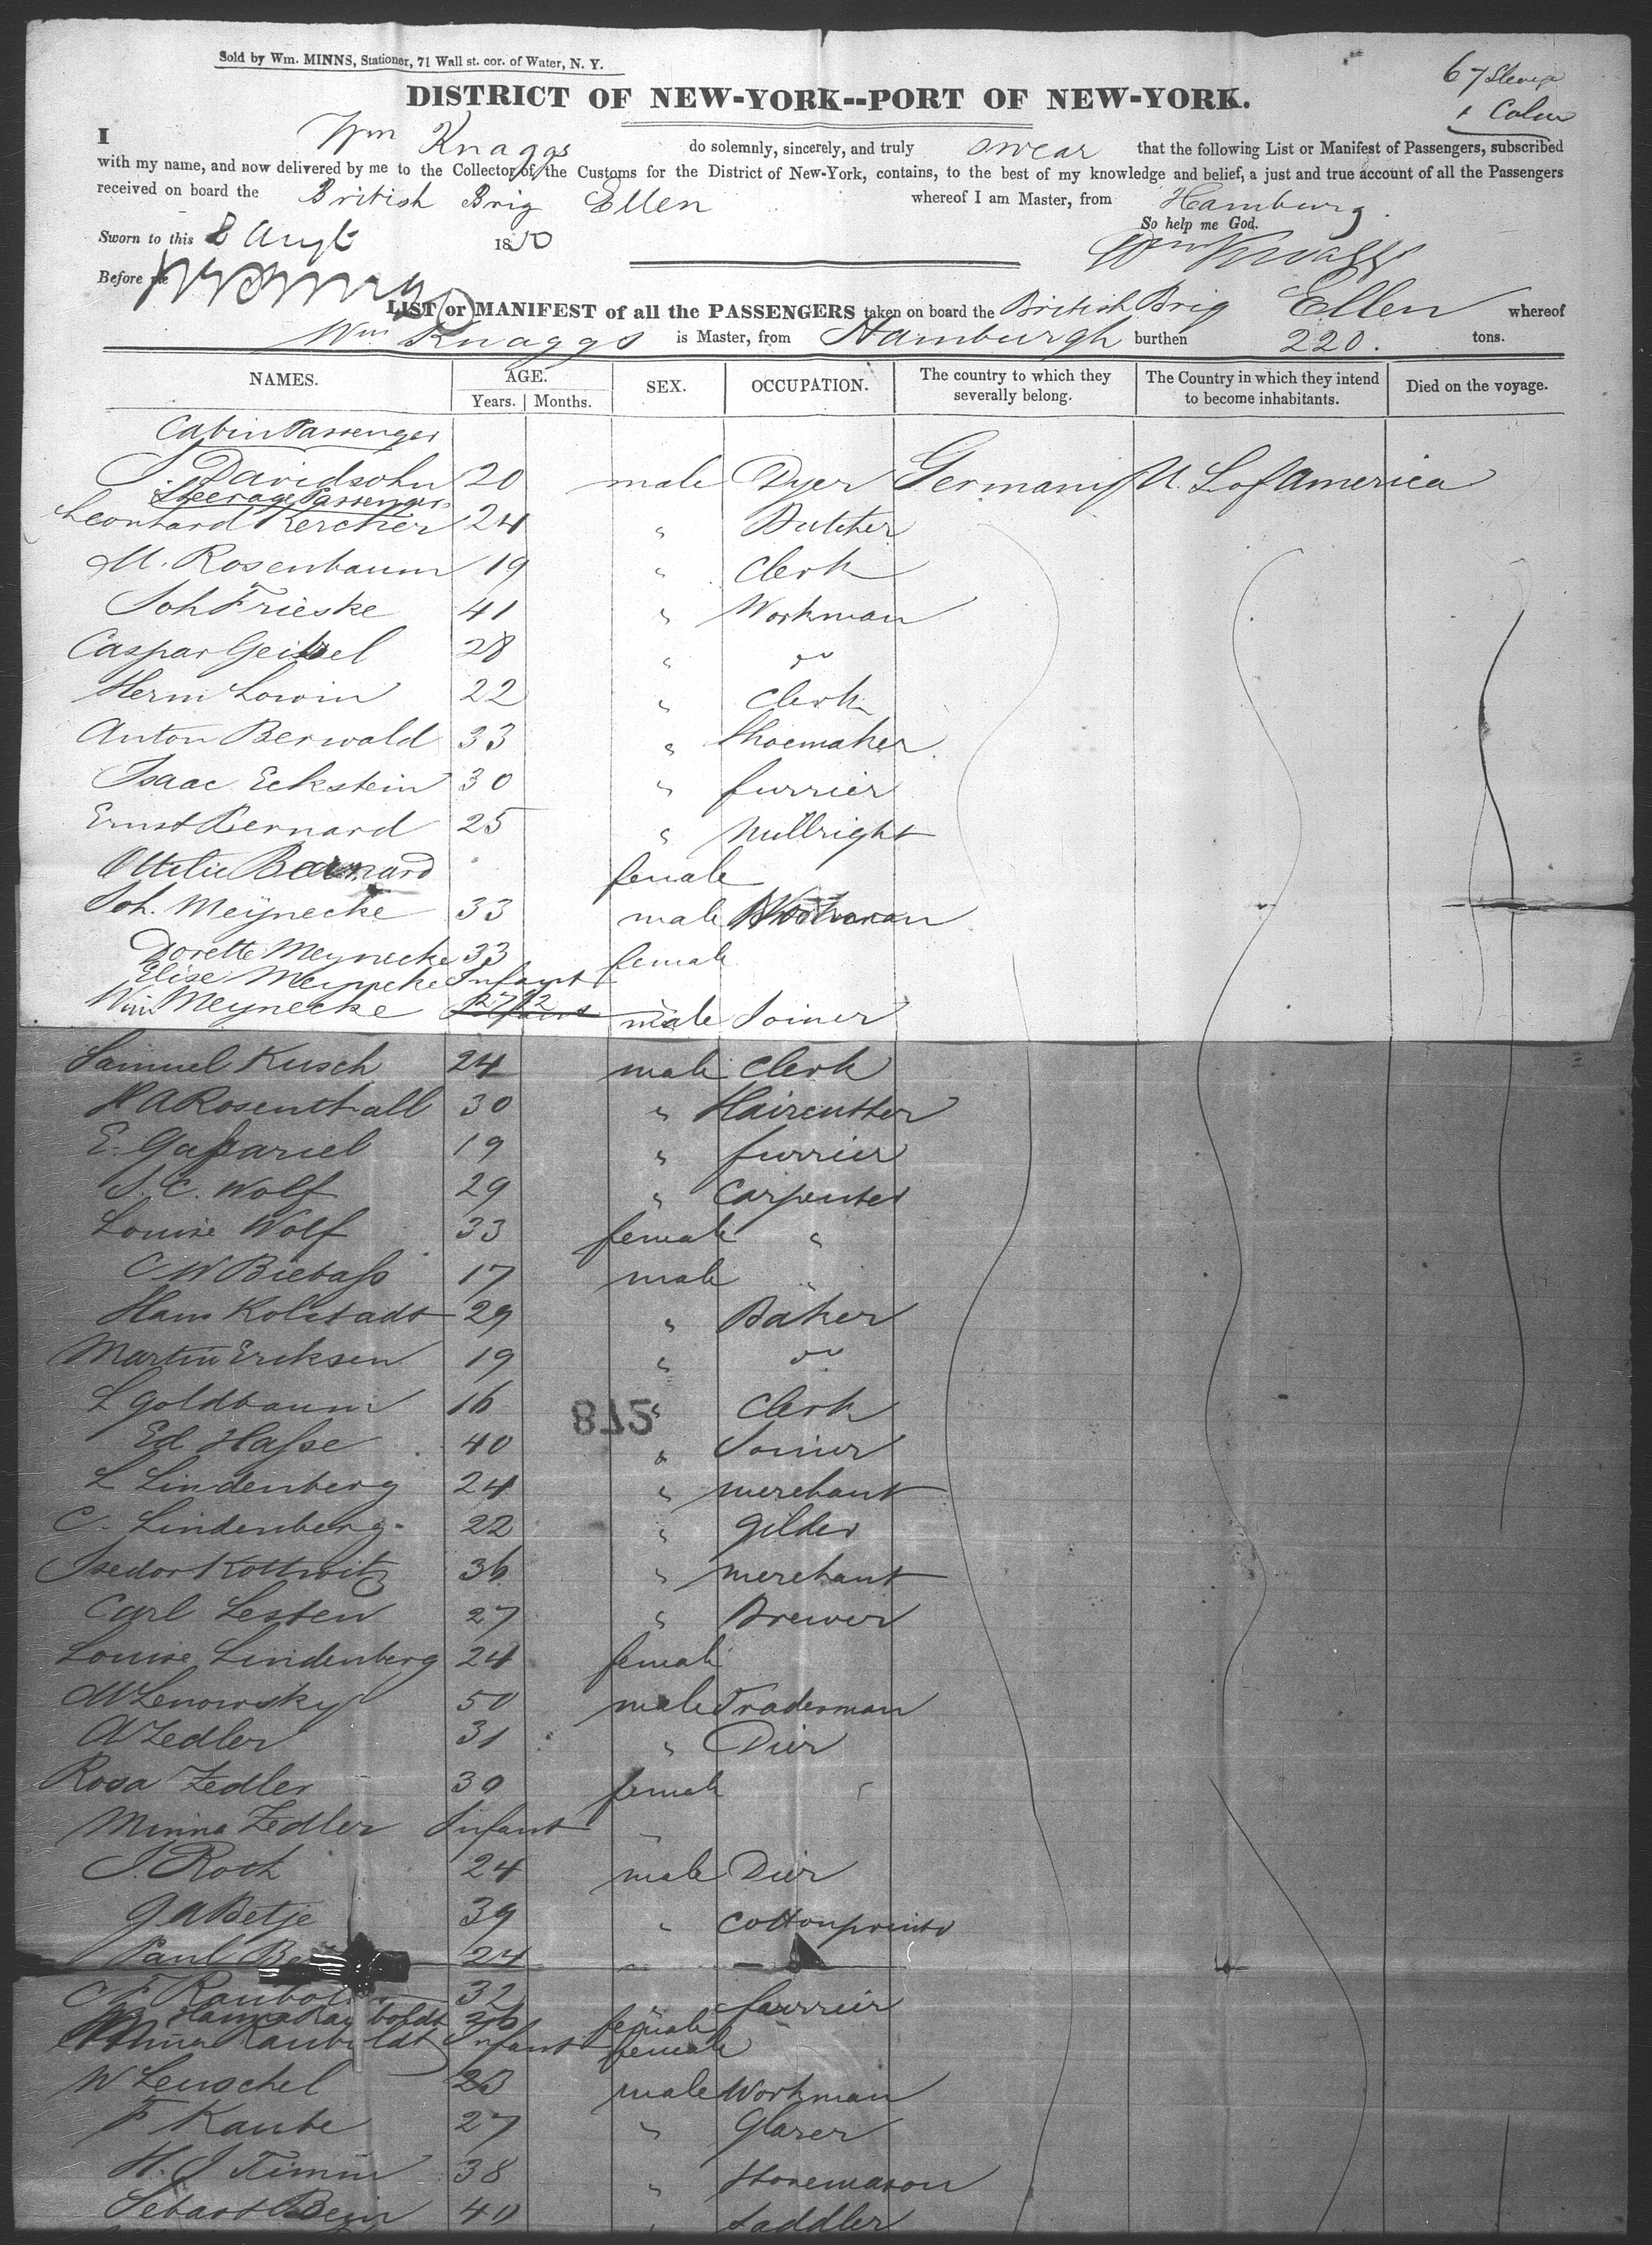 Sold by Wm. MINNS, Stationer, 71 Wall st. cor. of Water, N. Y.
67
1
DISTRICT OF NEW-YORK--PORT OF NEW-YORK.
I Wm Knaggs do solemnly, sincerely, and truly swear that the following List or Manifest of Passengers, subscribed
with my name, and now delivered by me to the Collector of the Customs for the District of New-York, contains, to the best of my knowledge and belief, a just and true account of all the Passengers
received on board the British Brig Ellen whereof I am Master, from Hamburg.
So help me God.
Sworn to this 8 Augt 1850
Wm Knaggs
Before me
LIST or MANIFEST of all the PASSENGERS taken on board the British Brig Ellen whereof
Wm Knaggs is Master, from Hamburgh burthen 220. tons.
NAMES. AGE. SEX. OCCUPATION. The country to which they severally belong. The Country in which they intend to become inhabitants. Died on the voyage.
Years. Months.
Cabin Passenger
S. Davidsohn 20 male Dyer Germany U. S. of America
Steerage Passengers
Leonhard Kercher 24 " Butcher
M. Rosenbaum 19 " Clerk
Joh Frieske 41 " Workman
Caspar 28 " do
Herm Lowin 22 " Clerk
Anton Berwald 33 " Shoemaker
Isaac Eckstein 30 " furrier
Ernst Bernard 25 " Millright
Ottilie Barnard " female
Joh. Meynecke 33 male Workman
Dorette Meynecke 33 female
Elise Meynecke Infant
Wm Meynecke 27 male Joiner
Samuel Kusch 24 male Clerk
H A Rosenthall 30 " Haircutter
E. Gaßariel 19 " furrier
J. C. Wolf 29 " Carpenter
Louise Wolf 33 female "
C W Biebaß 17 male "
Hans Kolstadt 29 " Baker
Martin Eriksen 19 " do
L Goldbaum 16 " Clerk
872
Ed Haßse 40 " Joiner
L Lindenberg 24 " merchant
C. Lindenberg 22 " gilder
Isedor Kottwitz 36 " merchant
Carl Lesten 27 " Brewer
Louise Lindenberg 24 female
M Lenowsky 50 male Traderman
A Zedler 31 " Dier
Rosa Zedler 30 female "
Minna Zedler Infant "
J. Roth 24 male Dier
G A Betje 39 " Cottonprinter
Paul 24 "
C F 32 " furrier
26 female
Infant female
W Lenschel 23 male Workman
F Kaube 27 " Glaser
H. J Timm 38 " Stonemason
Sebast Bein 40 " Saddler